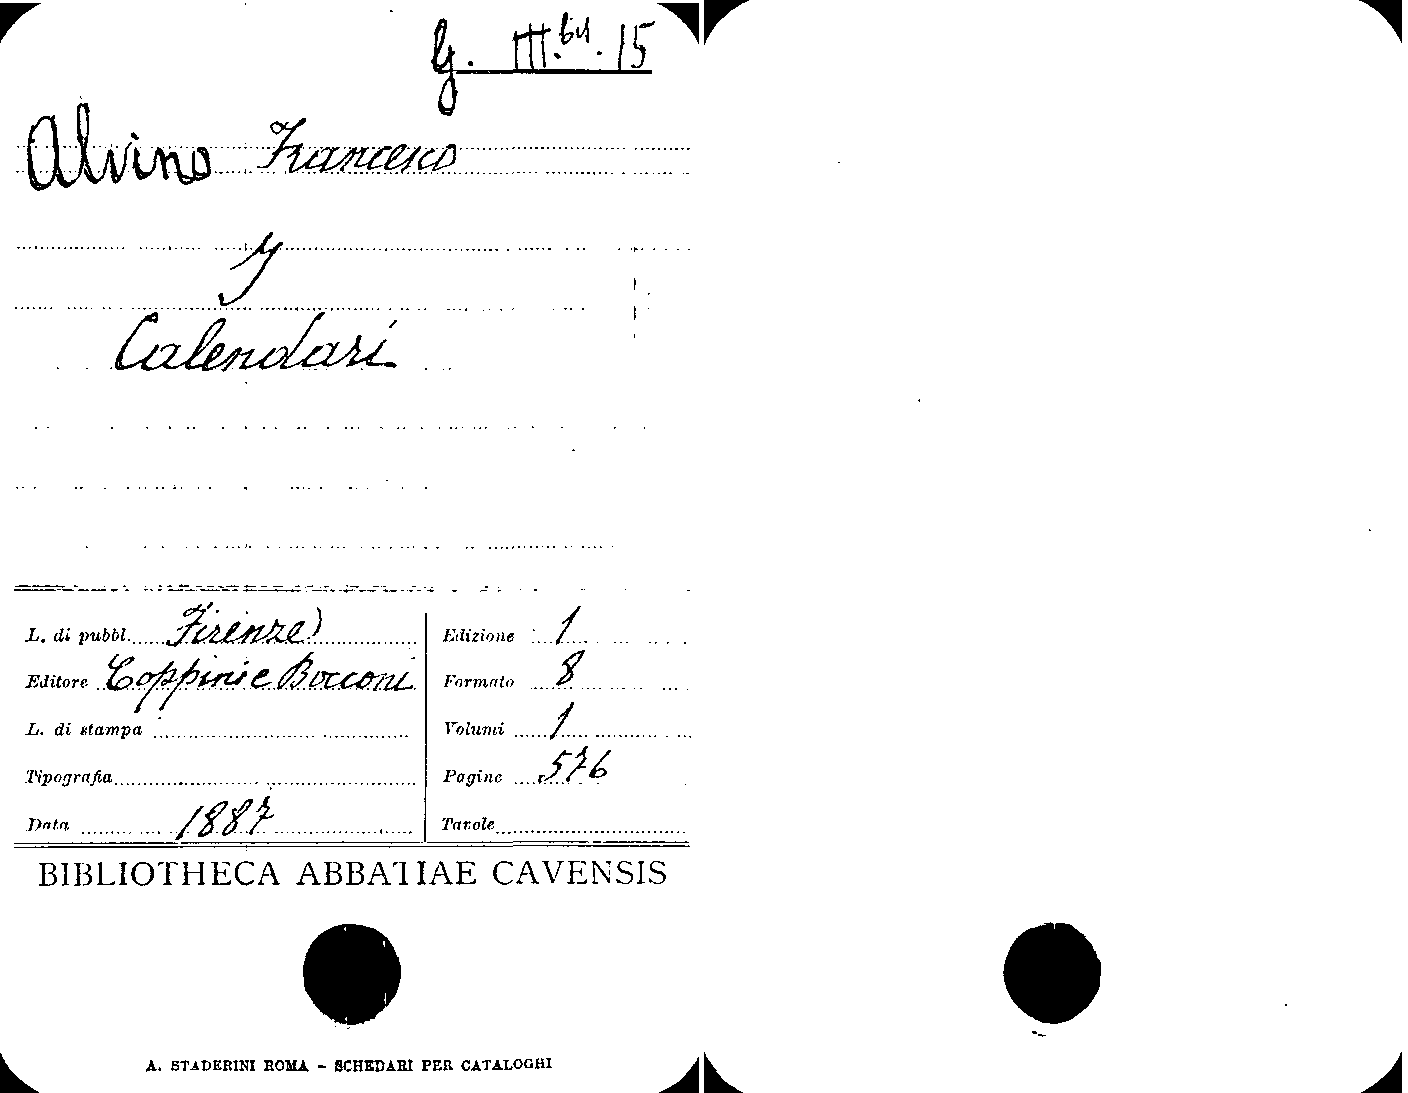 G. III.bis. 15
Alvino Francesco
I
Calendari
L. di pubbl. Firenze
Editore Coppini e Bocconi
L. di stampa
Tipografia
Data 1887
Edizione 1
Formato 8
Volumi 1
Pagine 576
Tavole
BIBLIOTHECA ABBATIAE CAVENSIS
A. STADERINI ROMA - SCHEDARI PER CATALOGHI